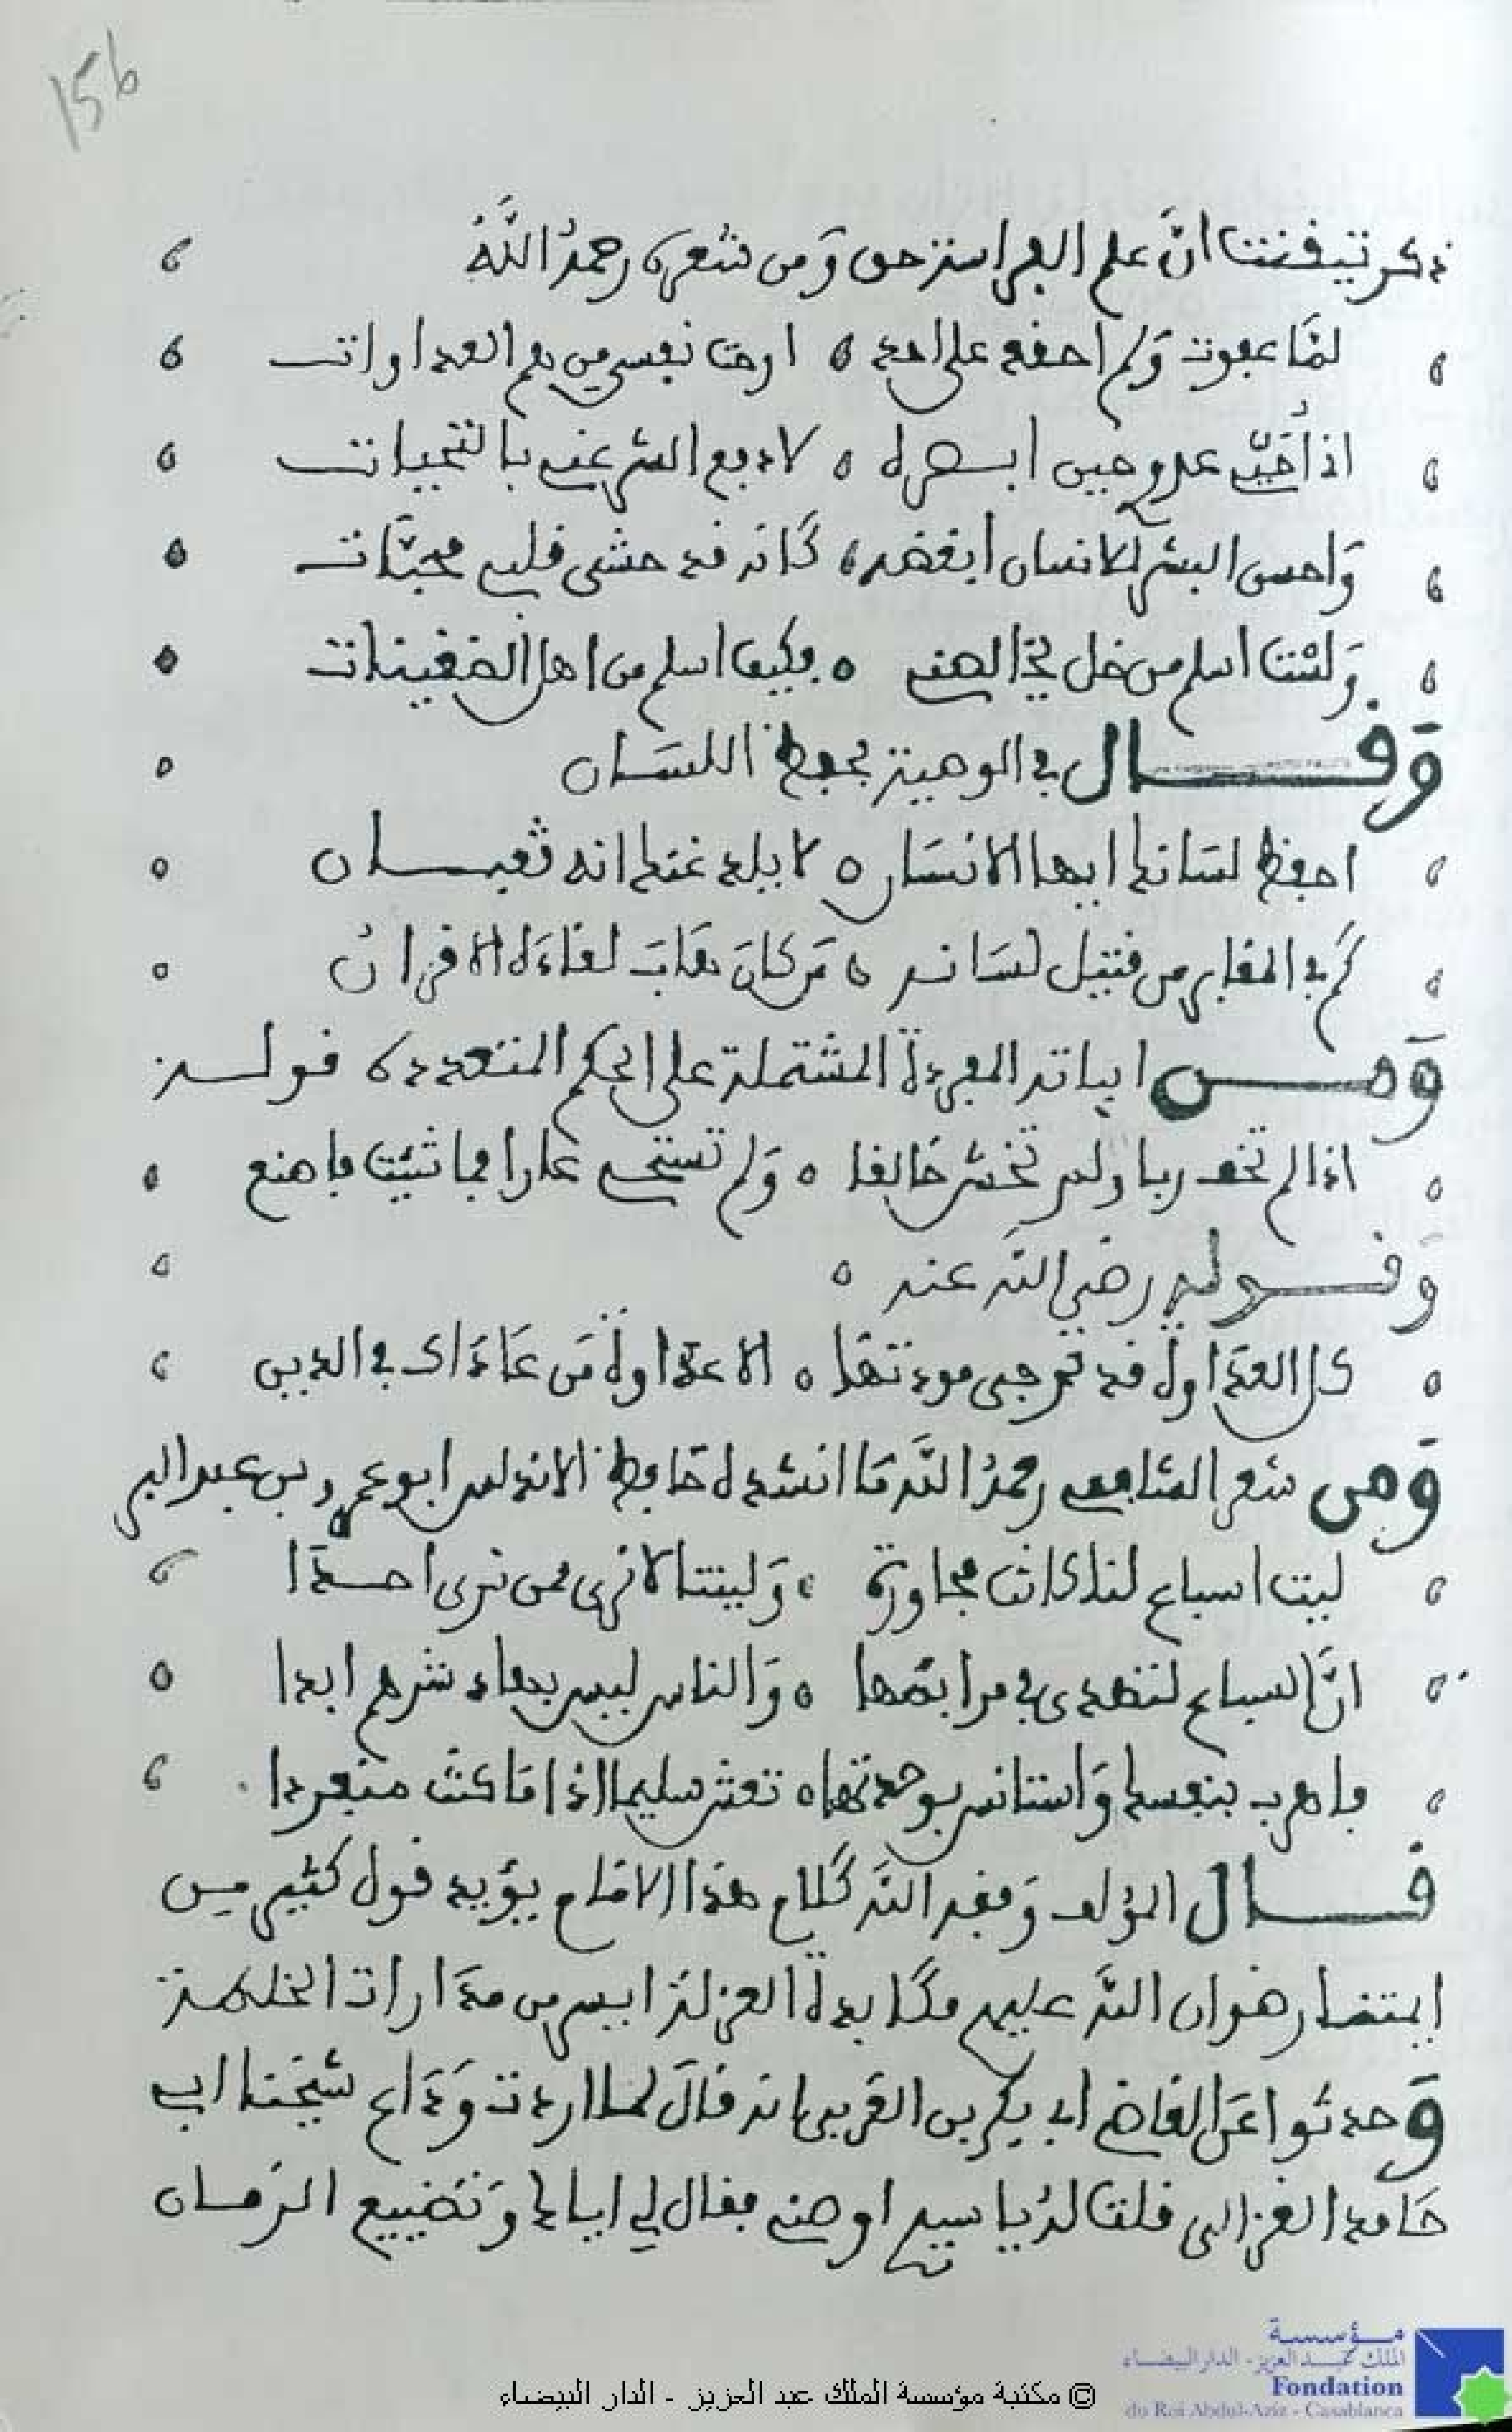 15b
ذكر تيقنت ان علم الفراسة حق وَمن شعره رحمهُ اللَّهُ
لمَّا عفوت وَلم احقد على احد ه ارحت نفسي من هم العداوات
اذا أحَيّي عدوي حين ابصره ه لادفع الشر عني بالتحيات
وَاحسن البشر للانسان ابغضه ه كَانه قد حشى قلبي محبَّات
وَلست اسلم من خل يخالصني ه فكيف اسلم من اهل الضغينات
وَقــال في الوصية بحفظ اللسَان
احفظ لسَانك ايها الانسَان ه لا يلدغنك انه ثعبــان
كَم في المقابر من قتيل لسَانه ه مَن كانَ هَابَ لقاءَه الاقرانُ
وَمــن ابياته المفردة المشتملة على الحكم المتعددة قولــه
اذا لم تخف ربا ولم تخش خَالقا ه وَلم تستحي عارا فما شئت فاصنع
وَقــوله رضي اللَّه عنه ه
كل العدَاوة قد ترجى مودتها ه الا عدَاوة مَن عَادَاك في الدين
وَمن شعر الشافعي رحمهُ اللَّه مَا انشده حَافظ الاندلس ابو عمرو بن عبد البر
ليت اسباع لنا كانت مجاورة ه وَليتنا لا نرى ممن نرى احــدَا
انَّ السباع لتهدى في مرابضها ه وَالناس ليس بهاد شرهم ابدا
فاهرب بنفسك وَاستانس بوحدتها ه تعش سليما اذا مَا كنت منفردا
قــال المؤلف وَفقه اللَّه كَلام هذا الامَام يؤيد قول كثير مـن
رضوان اللَّه عليهم مكَابدة العزلة ايسر من مدَارات الخلطة
وَحدثوا عَن القاضي ابي بكر بن العربي انه قالَ لمـا اردت وَدَاع شيخنا ابي
حَامد الغزالي قلت لهُ يا سيدي اوصني فقال لي اياك وَتضييع الزمَــان
مؤسسة
الملك عبد العزيز - الدار البيضاء
Fondation
du Roi Abdul-Aziz - Casablanca
© مكتبة مؤسسة الملك عبد العزيز - الدار البيضاء